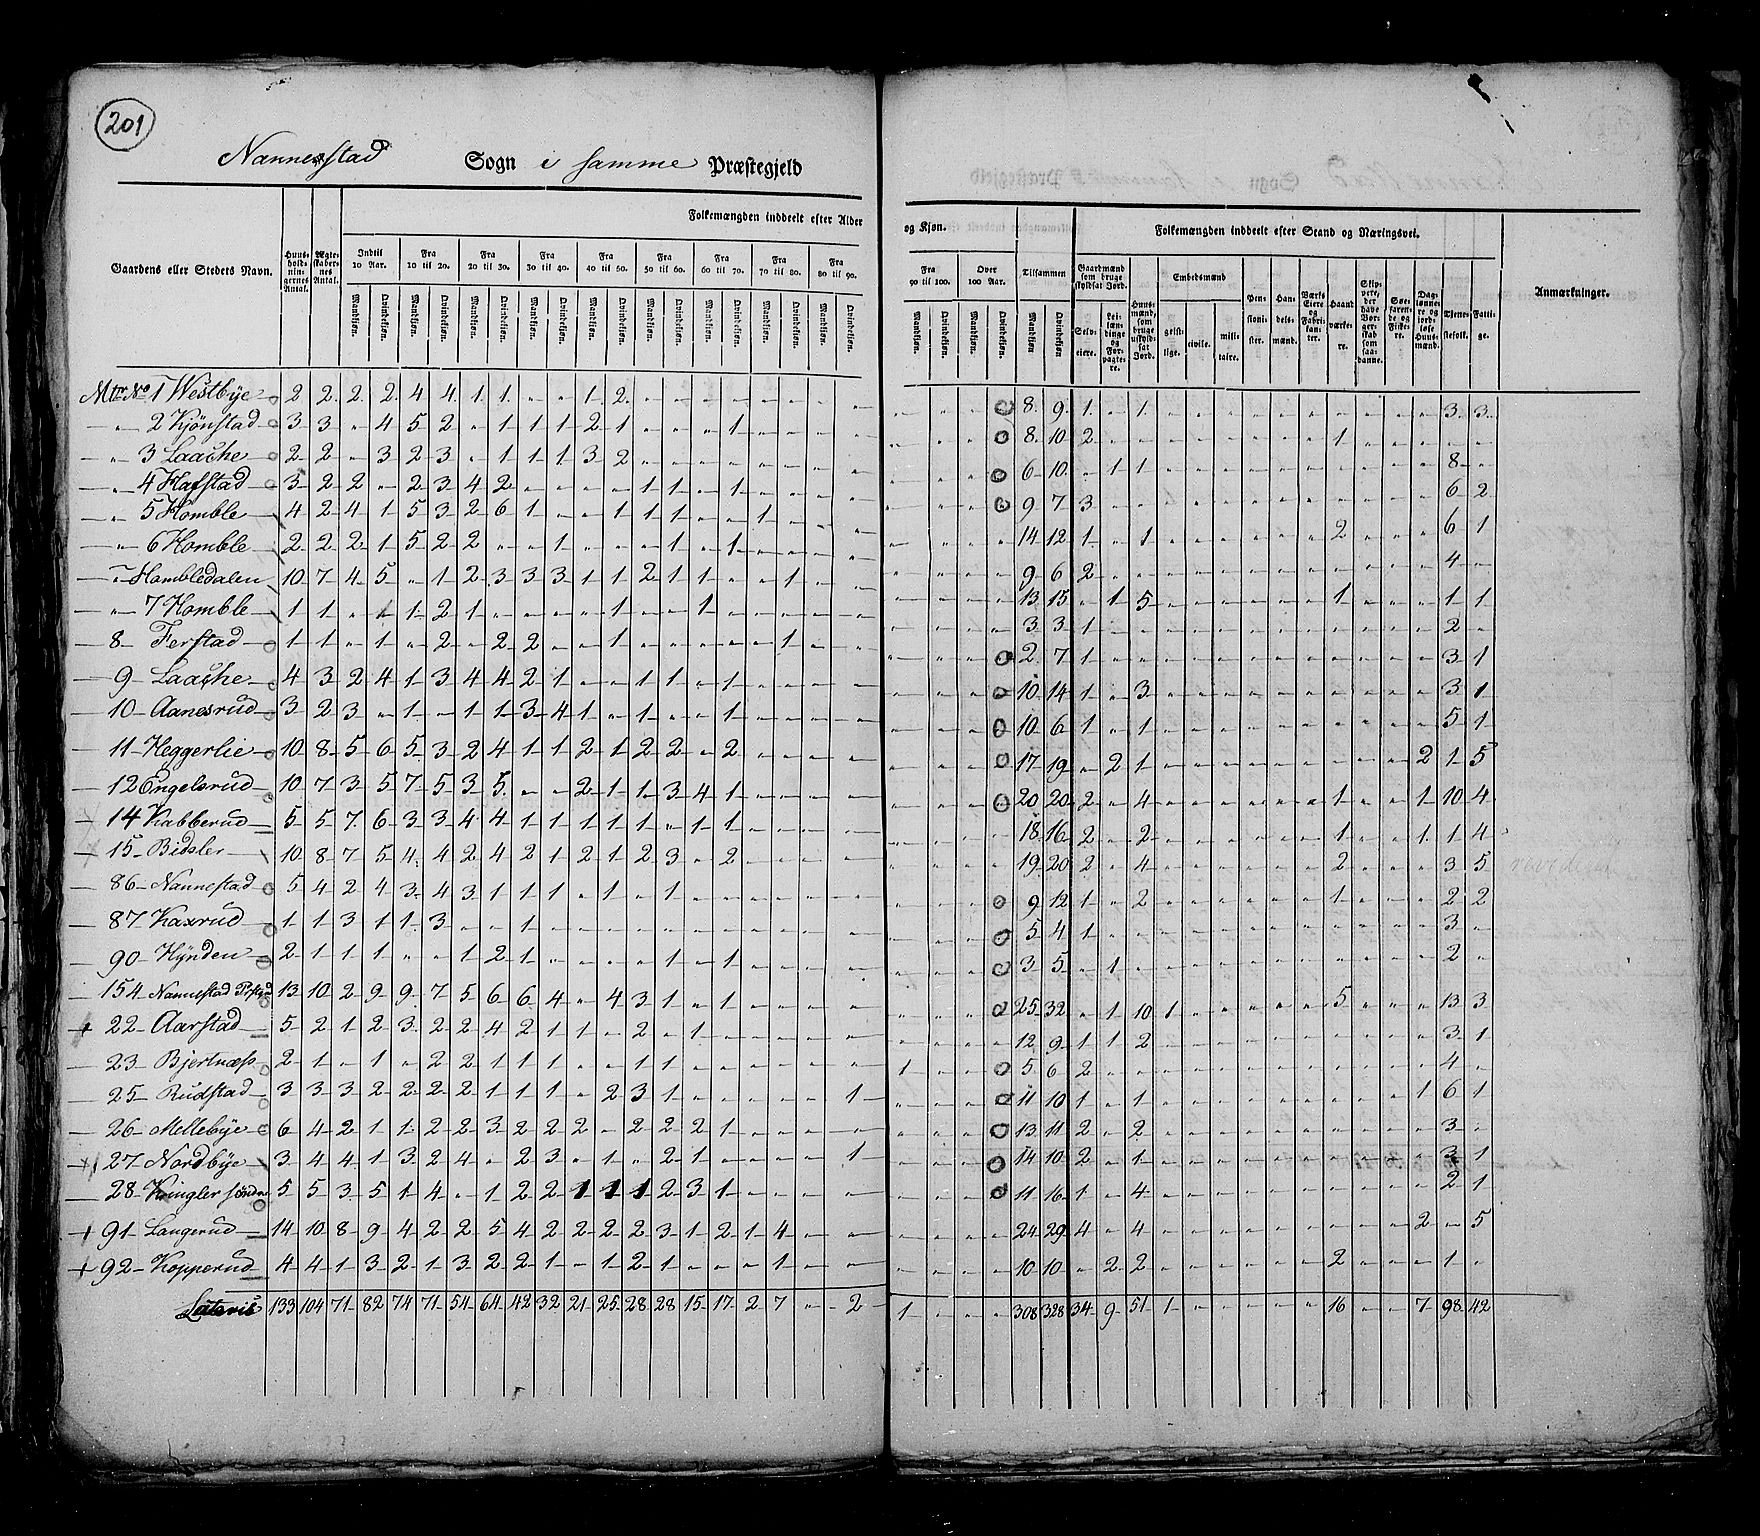 201
Nannestad Sogn i samme Præstegjeld
Folkemængden inddeelt efter Alder og Kjøn.
Folkemængden inddeelt efter Stand og Næringsvei.
Gaardens eller Stedets Navn.
Huus-holdningernes Antal.
Ægteskabernes Antal.
Indtil 10 Aar.
Fra 10 til 20.
Fra 20 til 30.
Fra 30 til 40.
Fra 40 til 50.
Fra 50 til 60.
Fra 60 til 70.
Fra 70 til 80.
Fra 80 til 90.
Fra 90 til 100.
Over 100 Aar.
Tilsammen
Mandkjøn. Qvindekjøn.
Gaardmænd som bruge skyldsat Jord.
Selveiere.
Leilændinge og Forpagtere.
Huusmænd, som bruge uskyldsat Jord.
Embedsmænd
geistlige. civile. militaire.
Pensionister.
Handelsmænd.
Værks Eiere og Fabrikanter.
Haandværkere.
Søefarende og Fiskere.
Tjenestefolk.
Fattige.
Anmærkninger.
Mtr No 1 Westbÿe 2 2 2 2 4 4 1 1 " " 1 2 8 9 1 " 1 3 3
" 2 Kjönstad 3 3 " 4 5 2 " 1 1 1 2 1 " " " 1 8 10 2 1
" 3 Laache 2 2 " 3 2 3 " 1 1 1 3 2 6 10 " 1 1 8
" 4 Hafstad 3 2 2 " 2 3 4 2 " " " " 1 1 " 1 9 7 3 6 2
" 5 Homble 4 2 4 1 5 3 2 6 1 " " 1 1 1 " " 1 14 12 1 " 1 2 6 1
" 6 Homble 2 2 2 1 5 2 2 " " 1 " " " 1 " 1 9 6 2 4
" Hombledalen 10 7 4 5 " 1 2 3 3 3 1 1 2 1 1 " " 1 13 15 " 1 5 1 1 1
" 7 Homble 1 1 " 1 1 2 1 " " " " 1 " " 1 3 3 1 2
8 Ferstad 1 1 " 1 " 2 " 2 2 " " 1 " " " " " 1 2 7 1 3 1
9 Laache 4 3 2 4 1 3 4 4 2 1 " " 1 1 " 1 10 14 1 " 3 3 1
10 Aanesrud 3 2 3 " 1 " 1 1 3 4 1 " 1 " " 1 10 6 1 " 1 5 1
11 Heggerlie 10 8 5 6 5 3 2 4 1 1 2 1 2 2 " 2 17 19 " 2 1 2 1 5
12 Engelsrud 10 7 3 5 7 5 3 5 " " 2 1 1 3 4 1 20 20 2 " 4 1 1 10 4
14 Kabberud 5 5 7 6 3 3 4 4 1 1 1 1 1 " 1 1 18 16 2 " 2 1 1 1 4
15 Bidsler 10 8 7 5 4 4 2 4 2 1 2 1 2 3 " 2 19 20 2 " 4 2 3 5
86 Nannestad 5 4 2 4 3 4 3 1 1 1 " 1 " 1 9 12 1 " 2 1 2 2
87 Kaxrud 1 1 3 1 1 3 " " 1 5 4 1 3
90 Hÿnden 2 1 1 1 " " 1 2 1 " " " " 1 " 1 3 5 " 1 2
154 Nannestad 13 10 2 9 9 7 5 6 6 4 " 4 3 1 " 1 25 32 " 1 10 1 5 13 3
22 Aarstad 5 2 1 2 3 2 2 4 2 1 1 " 2 " 1 12 9 1 1 2 3 1
23 Bjertnæss 2 1 " 1 " 2 2 1 1 1 " " 1 1 1 5 6 2 4
25 Rudstad 3 3 3 2 2 2 2 1 1 1 " 2 3 1 1 11 10 1 " 1 1 6 1
26 Mellebÿe 6 4 2 1 1 2 2 3 2 2 2 " 2 2 2 1 13 11 2 " 2 3
27 Nordbÿe 3 4 4 1 3 2 4 " 2 3 " 1 " 2 1 1 14 10 2 " 1 3 1
28 Kringler söndre 5 5 3 5 1 4 " 1 2 2 1 1 1 2 3 1 11 16 1 " 4 2 1
91 Langerud 14 10 8 9 4 2 2 5 4 2 2 2 2 3 1 2 1 4 24 29 4 " 4 2 " 5
92 Kopperud 4 4 1 3 2 1 3 2 2 1 " 1 2 1 " " " 1 10 10 " 2 2 2 1
Lateris 133 104 71 82 74 71 54 64 42 32 21 25 28 28 15 17 2 7 " 2 1 308 328 34 9 51 1 16 7 98 42